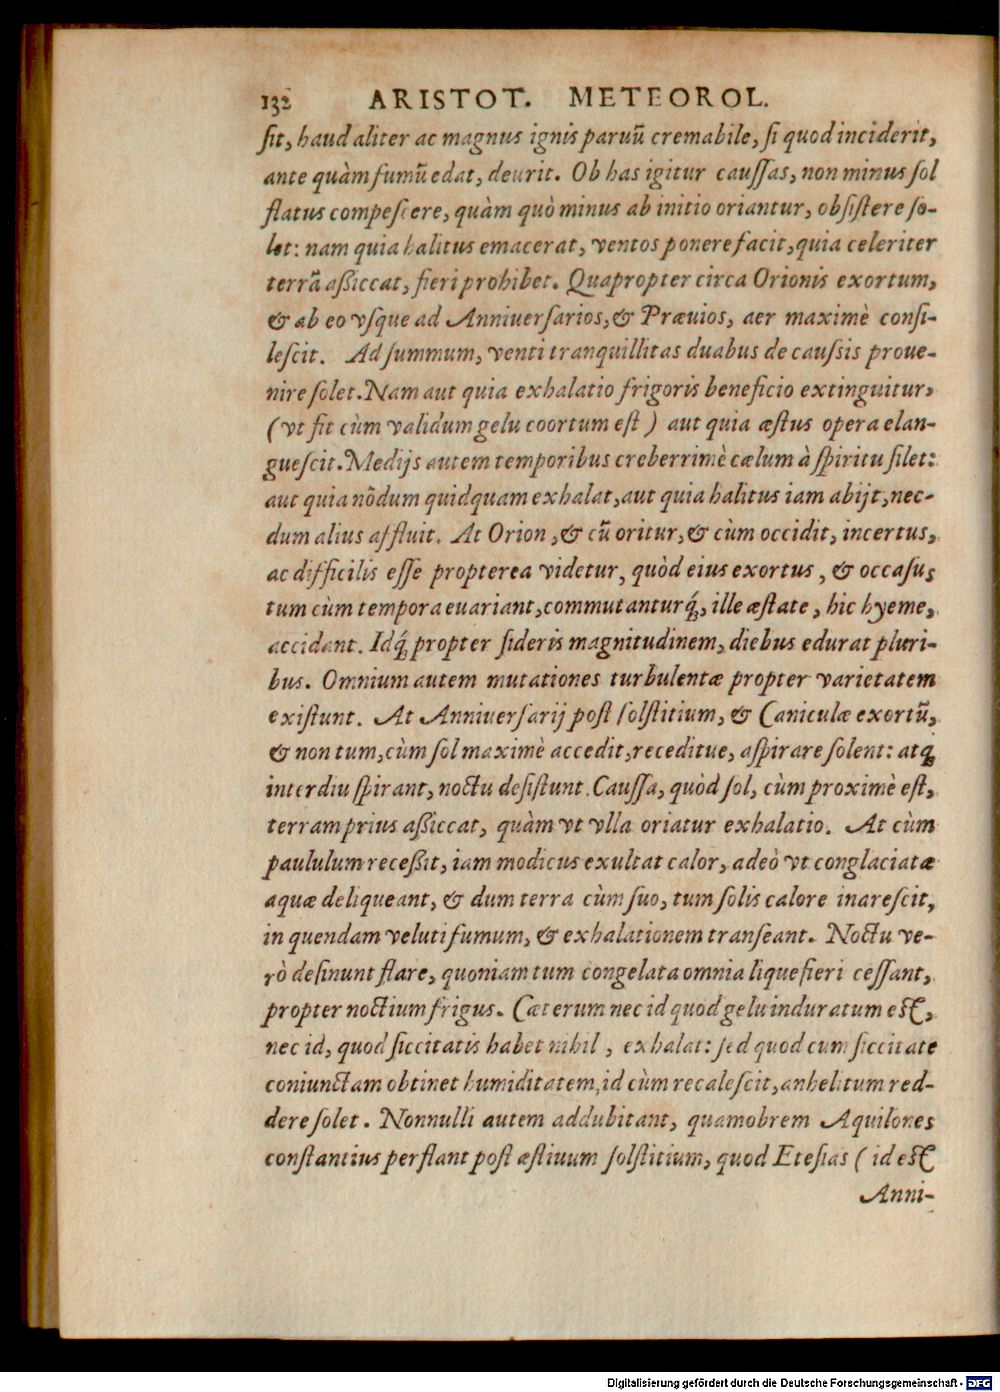 132 ARISTOT. METEOROL.
ſit, haud aliter ac magnus ignis paruũ cremabile, ſi quod inciderit,
ante quàm fumũ edat, deurit. Ob has igitur cauſſas, non minus ſol
flatus compeſcere, quàm quò minus ab initio oriantur, obſiſtere ſo-
let: nam quia halitus emacerat, ventos ponere facit, quia celeriter
terrã aßiccat, fieri prohibet. Quapropter circa Orionis exortum,
& ab eo vſque ad Anniuerſarios, & Præuios, aer maximè conſi-
leſcit. Ad ſummum, venti tranquillitas duabus de cauſsis proue-
nire ſolet. Nam aut quia exhalatio frigoris beneficio extinguitur,
(vt fit cùm validum gelu coortum eſt) aut quia æſtus opera elan-
gueſcit. Medijs autem temporibus creberrimè cælum à ſpiritu ſilet:
aut quia nõdum quidquam exhalat, aut quia halitus iam abijt, nec-
dum alius affluit. At Orion, & cũ oritur, & cùm occidit, incertus,
ac difficilis eſſe propterea videtur, quòd eius exortus, & occaſus
tum cùm tempora euariant, commutanturq́, ille æſtate, hic hyeme,
accidant. Idq́ propter ſideris magnitudinem, diebus edurat pluri-
bus. Omnium autem mutationes turbulentæ propter varietatem
exiſtunt. At Anniuerſarij poſt ſolſtitium, & Caniculæ exortũ,
& non tum, cùm ſol maximè accedit, receditue, aſpirare ſolent: atq̃
interdiu ſpirant, noctu deſiſtunt. Cauſſa, quòd ſol, cùm proximè eſt,
terram prius aßiccat, quàm vt vlla oriatur exhalatio. At cùm
paululum receßit, iam modicus exultat calor, adeò vt conglaciatæ
aquæ deliqueant, & dum terra cùm ſuo, tum ſolis calore inareſcit,
in quendam veluti fumum, & exhalationem tranſeant. Noctu ve-
rò deſinunt flare, quoniam tum congelata omnia liquefieri ceſſant,
propter noctium frigus. Cæterum nec id quod gelu induratum eſt,
nec id, quod ſiccitatis habet nihil, exhalat: ſed quod cum ſiccitate
coniunctam obtinet humiditatem, id cùm recaleſcit, anhelitum red-
dere ſolet. Nonnulli autem addubitant, quamobrem Aquilones
conſtantius perflant poſt æſtiuum ſolſtitium, quod Eteſias (id eſt
Anni-
Digitalisierung gefördert durch die Deutsche Forschungsgemeinschaft - DFG